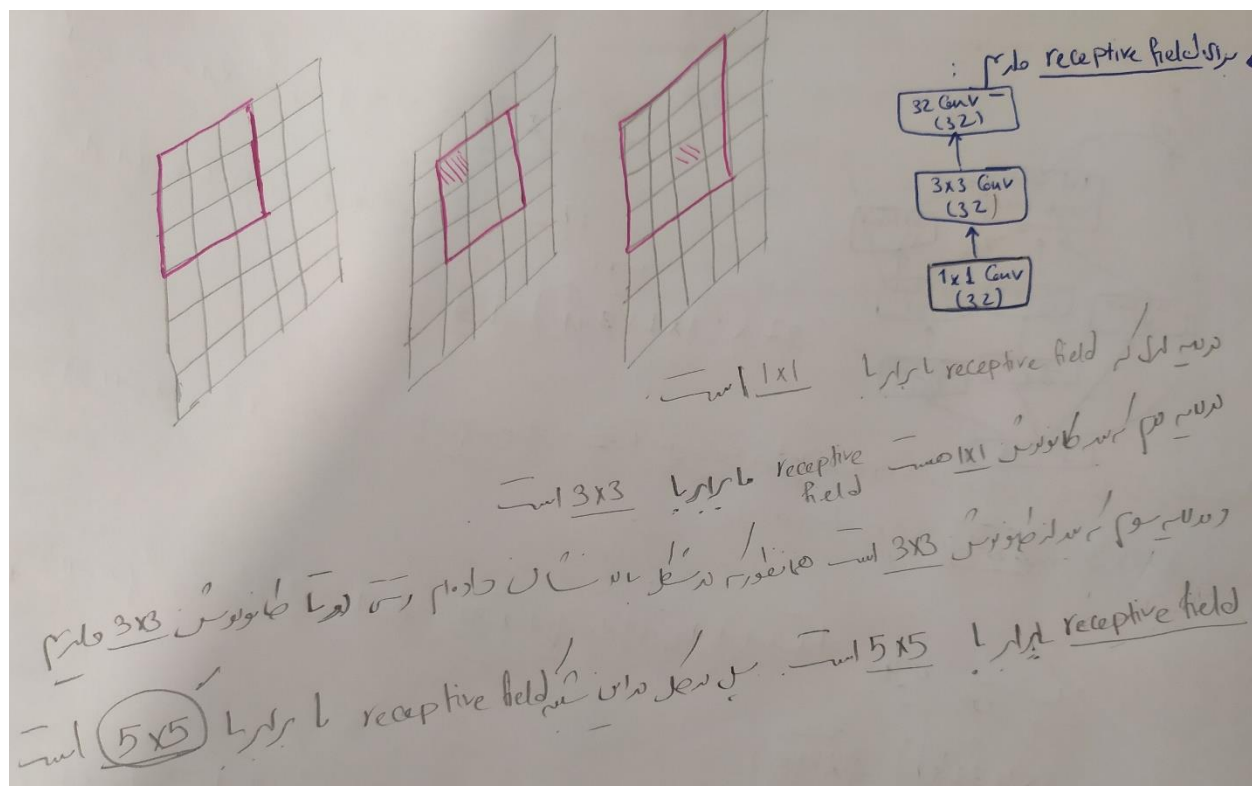 برای receptive field داریم :
32 Conv
(32)
3x3 Conv
(32)
1x1 Conv
(32)
در لایه اول که receptive field ما برابر با 1x1 است.
در لایه دوم که بعد کانولوشن 1x1 هست receptive field ما برابر با 3x3 است.
و در لایه سوم که بعد از کانولوشن 3x3 است همانطور که در شکل بالا نشان داده‌ام وقتی دو تا کانولوشن 3x3 داریم
receptive field برابر با 5x5 است. پس در کل در این شبکه receptive field ما برابر با 5x5 است